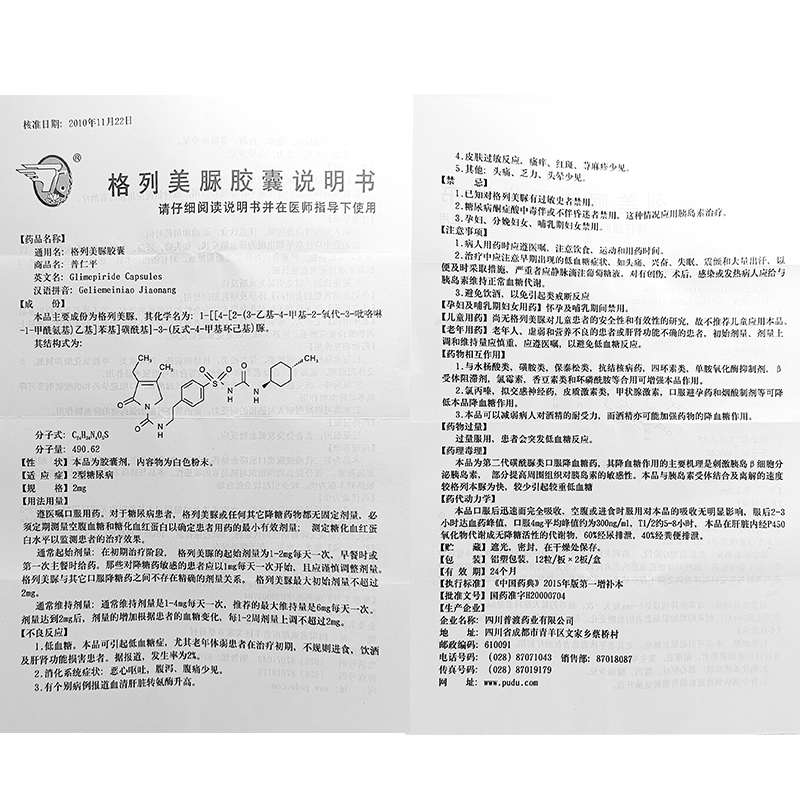 核准日期: 2010年11月22日
®
格列美脲胶囊说明书
请仔细阅读说明书并在医师指导下使用
【药品名称】
通用名: 格列美脲胶囊
商品名: 普仁平
英文名: Glimepiride Capsules
汉语拼音: Geliemeiniao Jiaonang
【成 份】
本品主要成份为格列美脲, 其化学名为: 1-[[4-[2-(3-乙基-4-甲基-2-氧代-3-吡咯啉
-1-甲酰氨基)乙基]苯基]磺酰基]-3-(反式-4-甲基环己基)脲。
其结构式为:
分子式: C24H34N4O5S
分子量: 490.62
【性 状】 本品为胶囊剂, 内容物为白色粉末。
【适 应 症】 2型糖尿病
【规 格】 2mg
【用法用量】
遵医嘱口服用药。对于糖尿病患者, 格列美脲或任何其它降糖药物都无固定剂量, 必
须定期测量空腹血糖和糖化血红蛋白以确定患者用药的最小有效剂量; 测定糖化血红蛋
白水平以监测患者的治疗效果。
通常起始剂量: 在初期治疗阶段, 格列美脲的起始剂量为1-2mg每天一次, 早餐时或
第一次主餐时给药。那些对降糖药敏感的患者应以1mg每天一次开始, 且应谨慎调整剂量。
格列美脲与其它口服降糖药之间不存在精确的剂量关系。 格列美脲最大初始剂量不超过
2mg。
通常维持剂量: 通常维持剂量是1-4mg每天一次, 推荐的最大维持量是6mg每天一次。
剂量达到2mg后, 剂量的增加根据患者的血糖变化, 每1-2周剂量上调不超过2mg。
【不良反应】
1.低血糖。本品可引起低血糖症, 尤其老年体弱患者在治疗初期, 不规则进食, 饮酒
及肝肾功能损害患者。据报道, 发生率为2%。
2.消化系统症状: 恶心呕吐, 腹泻、腹痛少见。
3.有个别病例报道血清肝脏转氨酶升高。
4.皮肤过敏反应、瘙痒、红斑、荨麻疹少见。
5.其他: 头痛、乏力、头晕少见。
【禁 忌】
1.已知对格列美脲有过敏史者禁用。
2.糖尿病酮症酸中毒伴或不伴昏迷者禁用, 这种情况应用胰岛素治疗。
3.孕妇、分娩妇女、哺乳期妇女禁用。
【注意事项】
1.病人用药时应遵医嘱, 注意饮食、运动和用药时间。
2.治疗中应注意早期出现的低血糖症状, 如头痛、兴奋、失眠、震颤和大量出汗, 以
便及时采取措施, 严重者应静脉滴注葡萄糖液, 对有创伤、术后、感染或发热病人应给与
胰岛素维持正常血糖代谢。
3.避免饮酒, 以免引起类戒断反应
【孕妇及哺乳期妇女用药】 怀孕及哺乳期间禁用。
【儿童用药】 尚无格列美脲对儿童患者的安全性和有效性的研究, 故不推荐儿童应用本品。
【老年用药】 老年人、虚弱和营养不良的患者或肝肾功能不确的患者, 初始剂量、剂量上
调和维持量应慎重, 应遵医嘱, 以避免低血糖反应。
【药物相互作用】
1.与水杨酸类, 磺胺类, 保泰松类, 抗结核病药, 四环素类, 单胺氧化酶抑制剂, β
受体阻滞剂, 氯霉素, 香豆素类和环磷酰胺等合用可增强本品作用。
2.氯丙嗪, 拟交感神经药, 皮质激素类, 甲状腺激素, 口服避孕药和烟酸制剂等可降
低本品降血糖作用。
3.本品可以减弱病人对酒精的耐受力, 而酒精亦可能加强药物的降血糖作用。
【药物过量】
过量服用, 患者会突发低血糖反应。
【药理毒理】
本品为第二代磺酰脲类口服降血糖药, 其降血糖作用的主要机理是刺激胰岛β细胞分
泌胰岛素, 部分提高周围组织对胰岛素的敏感性。本品与胰岛素受体结合及离解的速度
较格列本脲为快, 较少引起较重低血糖
【药代动力学】
本品口服后迅速而完全吸收, 空腹或进食时服用对本品的吸收无明显影响, 服后2-3
小时达血药峰值, 口服4mg平均峰值约为300ng/ml, T1/2约5-8小时, 本品在肝脏内经P450
氧化物代谢成无降糖活性的代谢物, 60%经尿排泄, 40%经粪便排泄。
【贮 藏】 遮光, 密封, 在干燥处保存。
【包 装】 铝塑包装, 12粒/板×2板/盒
【有 效 期】 24个月
【执行标准】 《中国药典》2015年版第一增补本
【批准文号】 国药准字H20000704
【生产企业】
企业名称: 四川普渡药业有限公司
地 址: 四川省成都市青羊区文家乡蔡桥村
邮政编码: 610091
电话号码: (028) 87071043 销售部: 87018087
传真号码: (028) 87019179
网 址: www.pudu.com